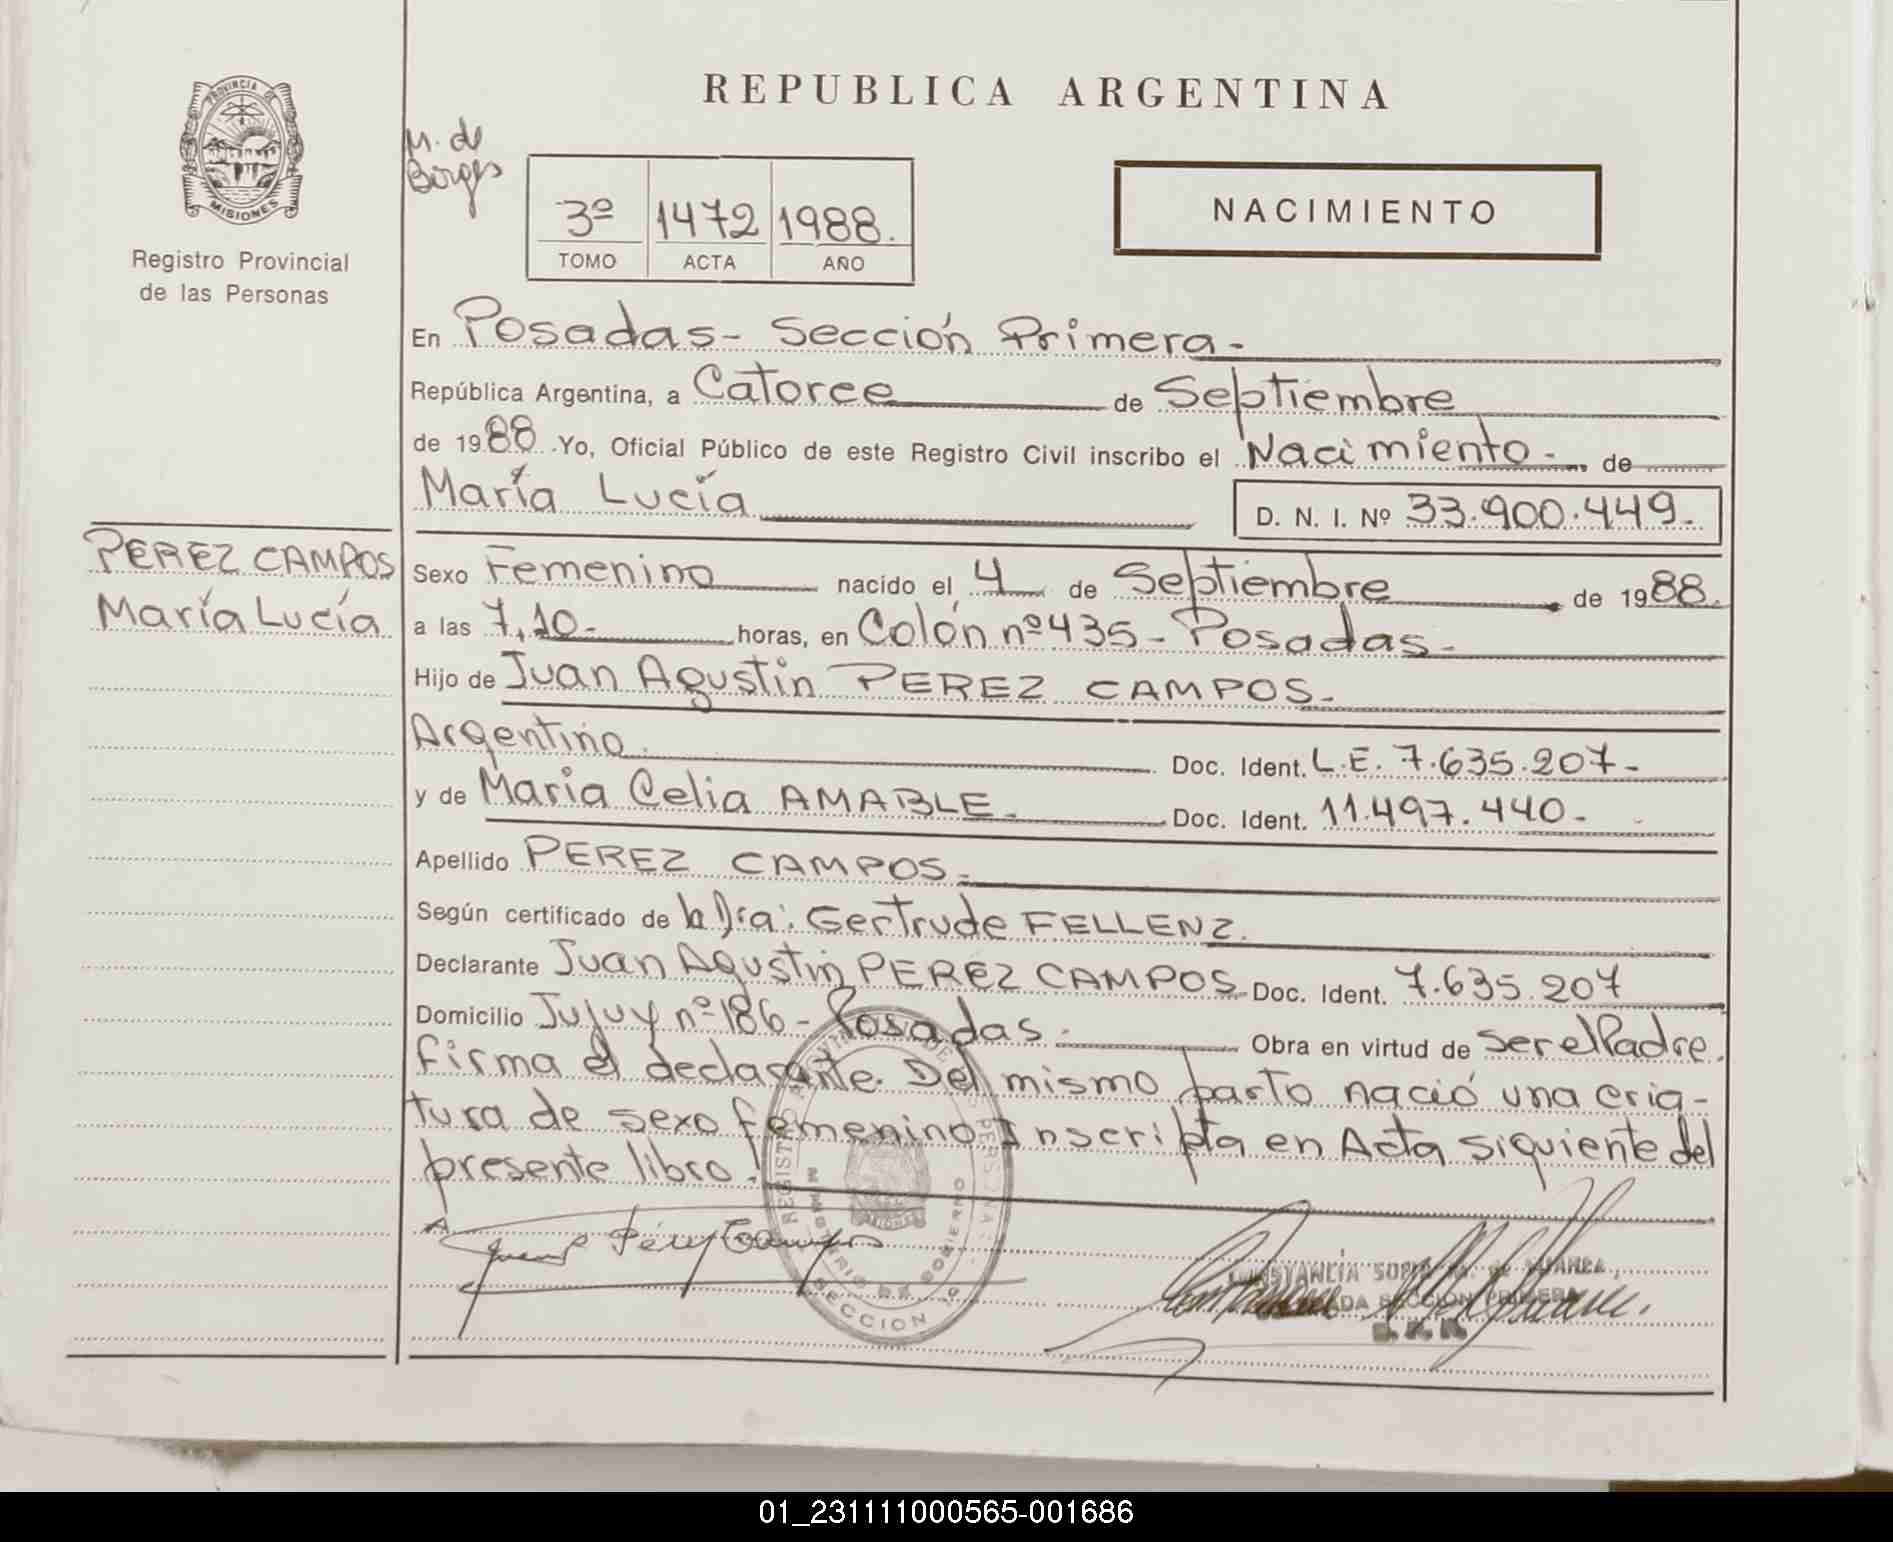 PROVINCIA DE
MISIONES
Registro Provincial
de las Personas
REPUBLICA ARGENTINA
M. de
Borges
3º 1472 1988.
TOMO ACTA AÑO
NACIMIENTO
En Posadas - Sección Primera -
República Argentina, a Catorce de Septiembre
de 1988. Yo, Oficial Público de este Registro Civil inscribo el Nacimiento - de
María Lucía
D. N. I. Nº 33.900.449.
PEREZ CAMPOS
María Lucía
Sexo Femenino nacido el 4 de Septiembre de 1988.
a las 7,10- horas, en Colón nº 435 - Posadas -
Hijo de Juan Agustin PEREZ CAMPOS -
Argentino. Doc. Ident. L.E. 7.635.207-
y de Maria Celia AMABLE - Doc. Ident. 11.497.440-
Apellido PEREZ CAMPOS -
Según certificado de la Dra: Gertrude FELLENZ.
Declarante Juan Agustin PEREZ CAMPOS Doc. Ident. 7.635.207
Domicilio Jujuy nº 186 - Posadas - Obra en virtud de ser el Padre.
Firma el declarante. Del mismo parto nació una cria-
tura de sexo femenino Inscripta en Acta siguiente del
presente libro.
REGISTRO PROVINCIAL DE LAS PERSONAS
MINISTERIO DE GOBIERNO
SECCION 1º
Juan Pérez Campos
CONSTANCIA
SECCION PRIMERA
01_231111000565-001686